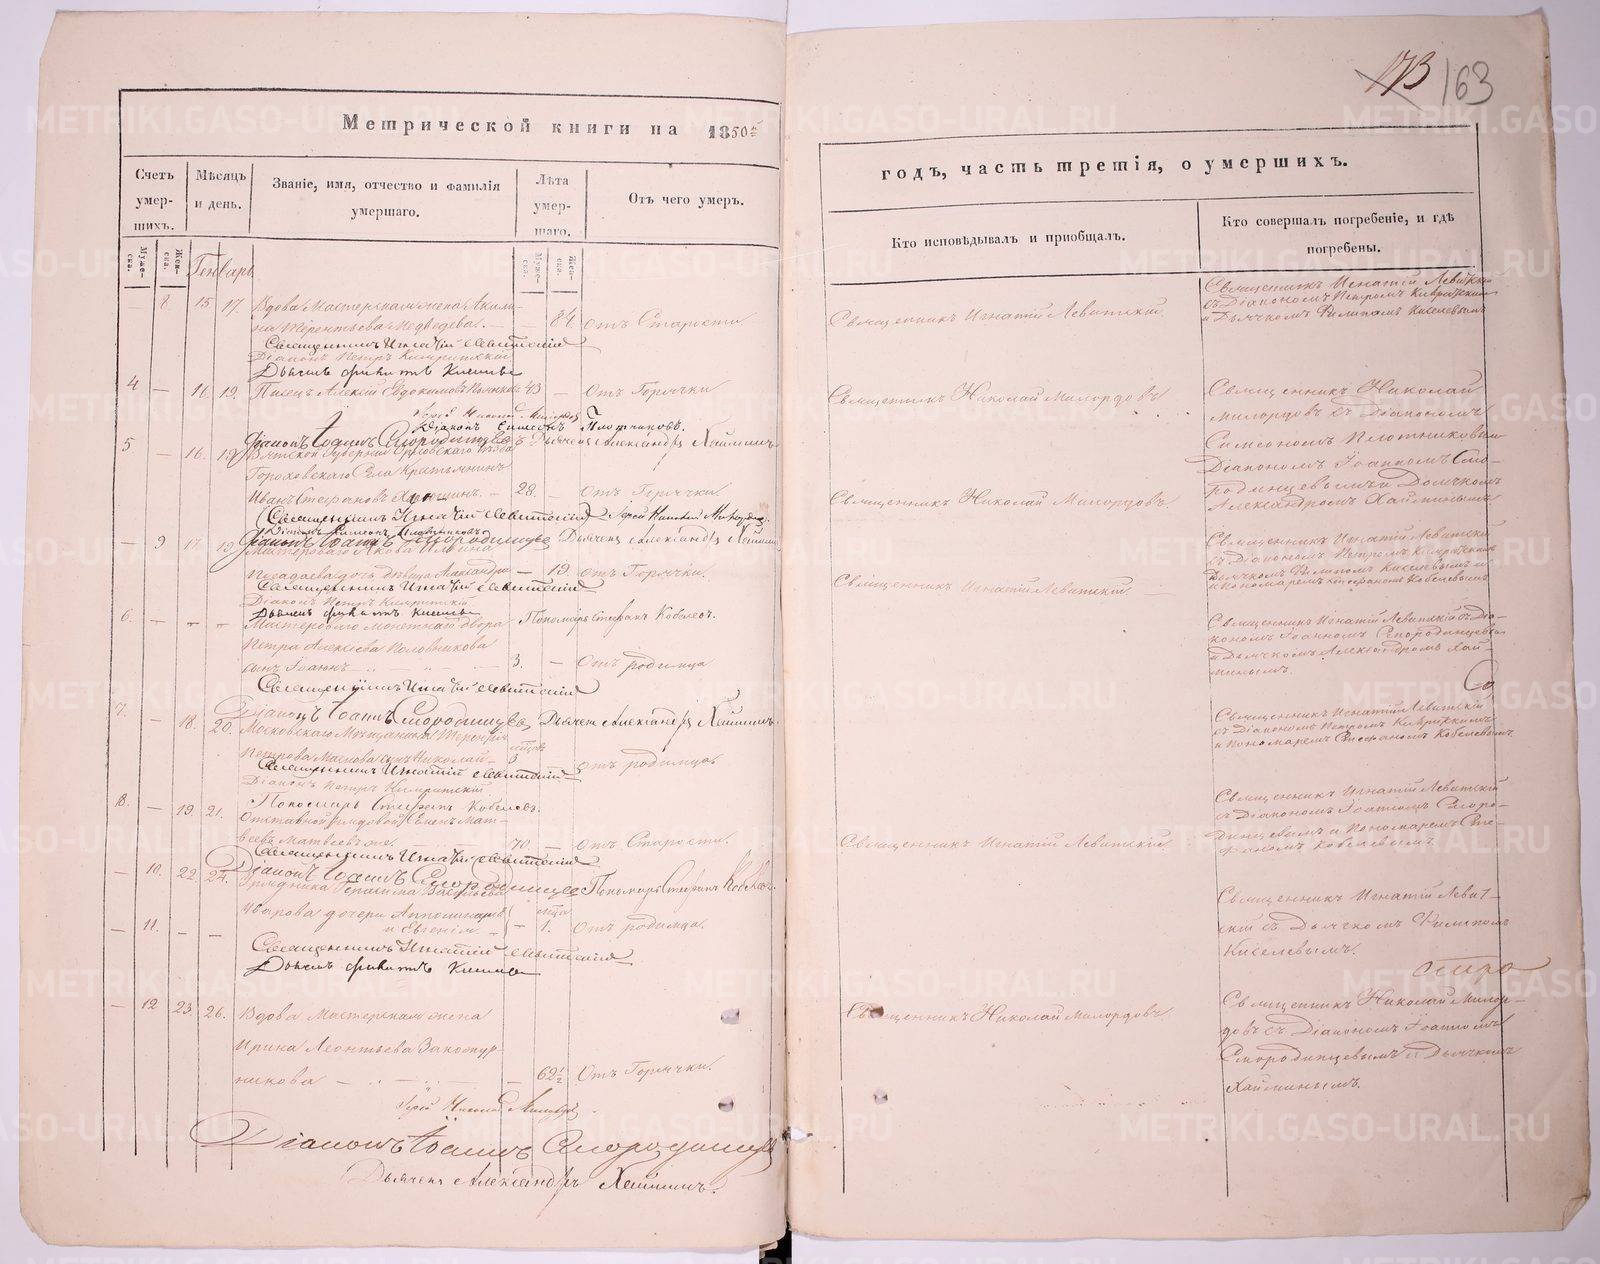 173 163
Метрической книги на 1850й
годъ, часть третія, о умершихъ.
Счетъ умер-шихъ.
Мѣсяцъ и день.
Званіе, имя, отчество и фамилія умершаго.
Лѣта умер-шаго.
Отъ чего умеръ.
Кто исповѣдывалъ и пріобщалъ.
Кто совершалъ погребеніе, и гдѣ погребены.
Муже-ска.
Жен-ска.
Муже-ска.
Жен-ска.
Генварь
— 8. 15 17. Вдова Мастерская жена Акили-
на Терентьева Медведева. — — 84 Отъ Старости
Священникъ Игнатій Левитскій
Священникъ Игнатій Левитскій
съ Діакономъ Петромъ
и Дьячкомъ Филипомъ Киселевымъ
Священникъ Игнатій Левитскій
Діаконъ Петръ
Дьячекъ Филиппъ Киселевъ
4 — 16. 19. Писецъ Алексій Евдокимовъ 43 — Отъ Горячки
Священникъ Николай Милордовъ
Священникъ Николай
Милордовъ съ Діакономъ
Симеономъ Плотниковымъ
Діакономъ Іоанномъ Смо-
родинцевымъ и Дьячкомъ
Александромъ Хайминымъ
Іерей Николай Милордовъ
Діаконъ Симеонъ Плотниковъ.
Діаконъ Іоаннъ Смородинцевъ Дьячекъ Александръ Хайминъ
5 — 16. 19. Вятской Губерніи Орловскаго уѣзда
Гороховскаго Села Крестьянинъ
Иванъ Стефановъ — 28. — Отъ Горячки.
Священникъ Николай Милордовъ.
Священникъ Игнатій Левитскій Іерей Николай Милордовъ.
Діаконъ Симеонъ Плотниковъ
Діаконъ Іоаннъ Смородинцевъ Дьячекъ Александръ Хайминъ
— 9 17. 19. Мастероваго Якова Ильина
дочь девица Александра — 19. Отъ Горячки.
Священникъ Игнатій Левитскій
Священникъ Игнатій Левитскій
съ Діакономъ Петромъ
Дьячкомъ Филипомъ Киселевымъ и
Пономаремъ Стефаномъ Кобелевымъ
Священникъ Игнатій Левитскій
Діаконъ Петръ
Дьячекъ Филиппъ Киселевъ
Пономарь Стефанъ Кобелевъ.
6. — — — Мастероваго монетнаго двора
Петра Алексіева Половникова
сынъ Іоаннъ 3. — Отъ родимца
Священникъ Игнатій Левитскій съ Діа-
кономъ Іоанномъ Смородинцевымъ
и Дьячкомъ Александромъ Хай-
минымъ.
Священникъ Игнатій Левитскій
Діаконъ Іоаннъ Смородинцевъ, Дьячекъ Александръ Хайминъ.
7. — 18. 20. Московскаго Мещанина Терентія
Петрова Маслова сынъ Николай 3 Отъ родимца
Священникъ Игнатій Левитскій
съ Діакономъ Петромъ
и Пономаремъ Стефаномъ Кобелевымъ
Священникъ Игнатій Левитскій
Діаконъ Петръ
Пономарь Стефанъ Кобелевъ.
8. — 19. 21. Отставной рядовой Семенъ Мат-
веевъ 70. — Отъ Старости.
Священникъ Игнатій Левитскій.
Священникъ Игнатій Левитскій
съ Діакономъ Іоанномъ Сморо-
динцевымъ и Пономаремъ Сте-
фаномъ Кобелевымъ.
Священникъ Игнатій Левитскій
Діаконъ Іоаннъ Смородинцевъ Пономарь Стефанъ Кобелевъ.
— 10. 22. 24. Урядника Герасима Васильева
Уварова дочери Апполинарія
— 11. — — и Евгенія. — 1. Отъ родимца.
Священникъ Игнатій Леви-
скій съ Дьячкомъ Филипомъ
Киселевымъ.
Священникъ Игнатій Левитскій
Дьячекъ Филиппъ Киселевъ
— 12 23. 26. Вдова Мастерская жена
Ирина Леонтьева Закожур-
никова — 62½ Отъ Горячки.
Священникъ Николай Милордовъ
Священникъ Николай Милор-
довъ съ Діакономъ Іоанномъ
Смородинцевымъ и Дьячкомъ
Хайминымъ.
Іерей Николай Милордовъ
Діаконъ Іоаннъ Смородинцевъ
Дьячекъ Александръ Хайминъ.
METRIKI.GASO-URAL.RU